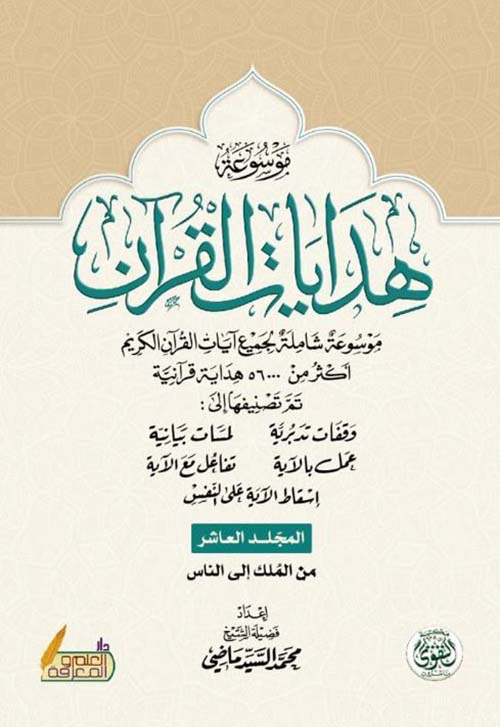 مَوْسُوعَةُ
هِدَايَاتِ القُرْآنِ
مَوْسُوعَةٌ شَامِلَةٌ لِجَمِيْعِ آيَاتِ القُرْآنِ الكَرِيْمِ
أكْثَرُ مِنْ ٥٦٠٠٠ هِدَايَة قُرْآنِيَّة
تَمَّ تَصْنِيفُهَا إِلَى :
وَقَفَات تَدَبُّرِيَّة لَمَسَات بَيَانِيَة
عَمَل بِالآيَة تَفَاعُل مَعَ الآيَة
إِسْقَاط الآيَة عَلَى النَّفْسِ
المجَلد العاشر
من المُلك إلى الناس
إِعْدَادُ
فَضِيلَةِ الشَّيْخِ
محمَّد السَّيِّد مَاضِي
دار
العلم و
المعرفة
مكتبة
التقوى
ناشرون